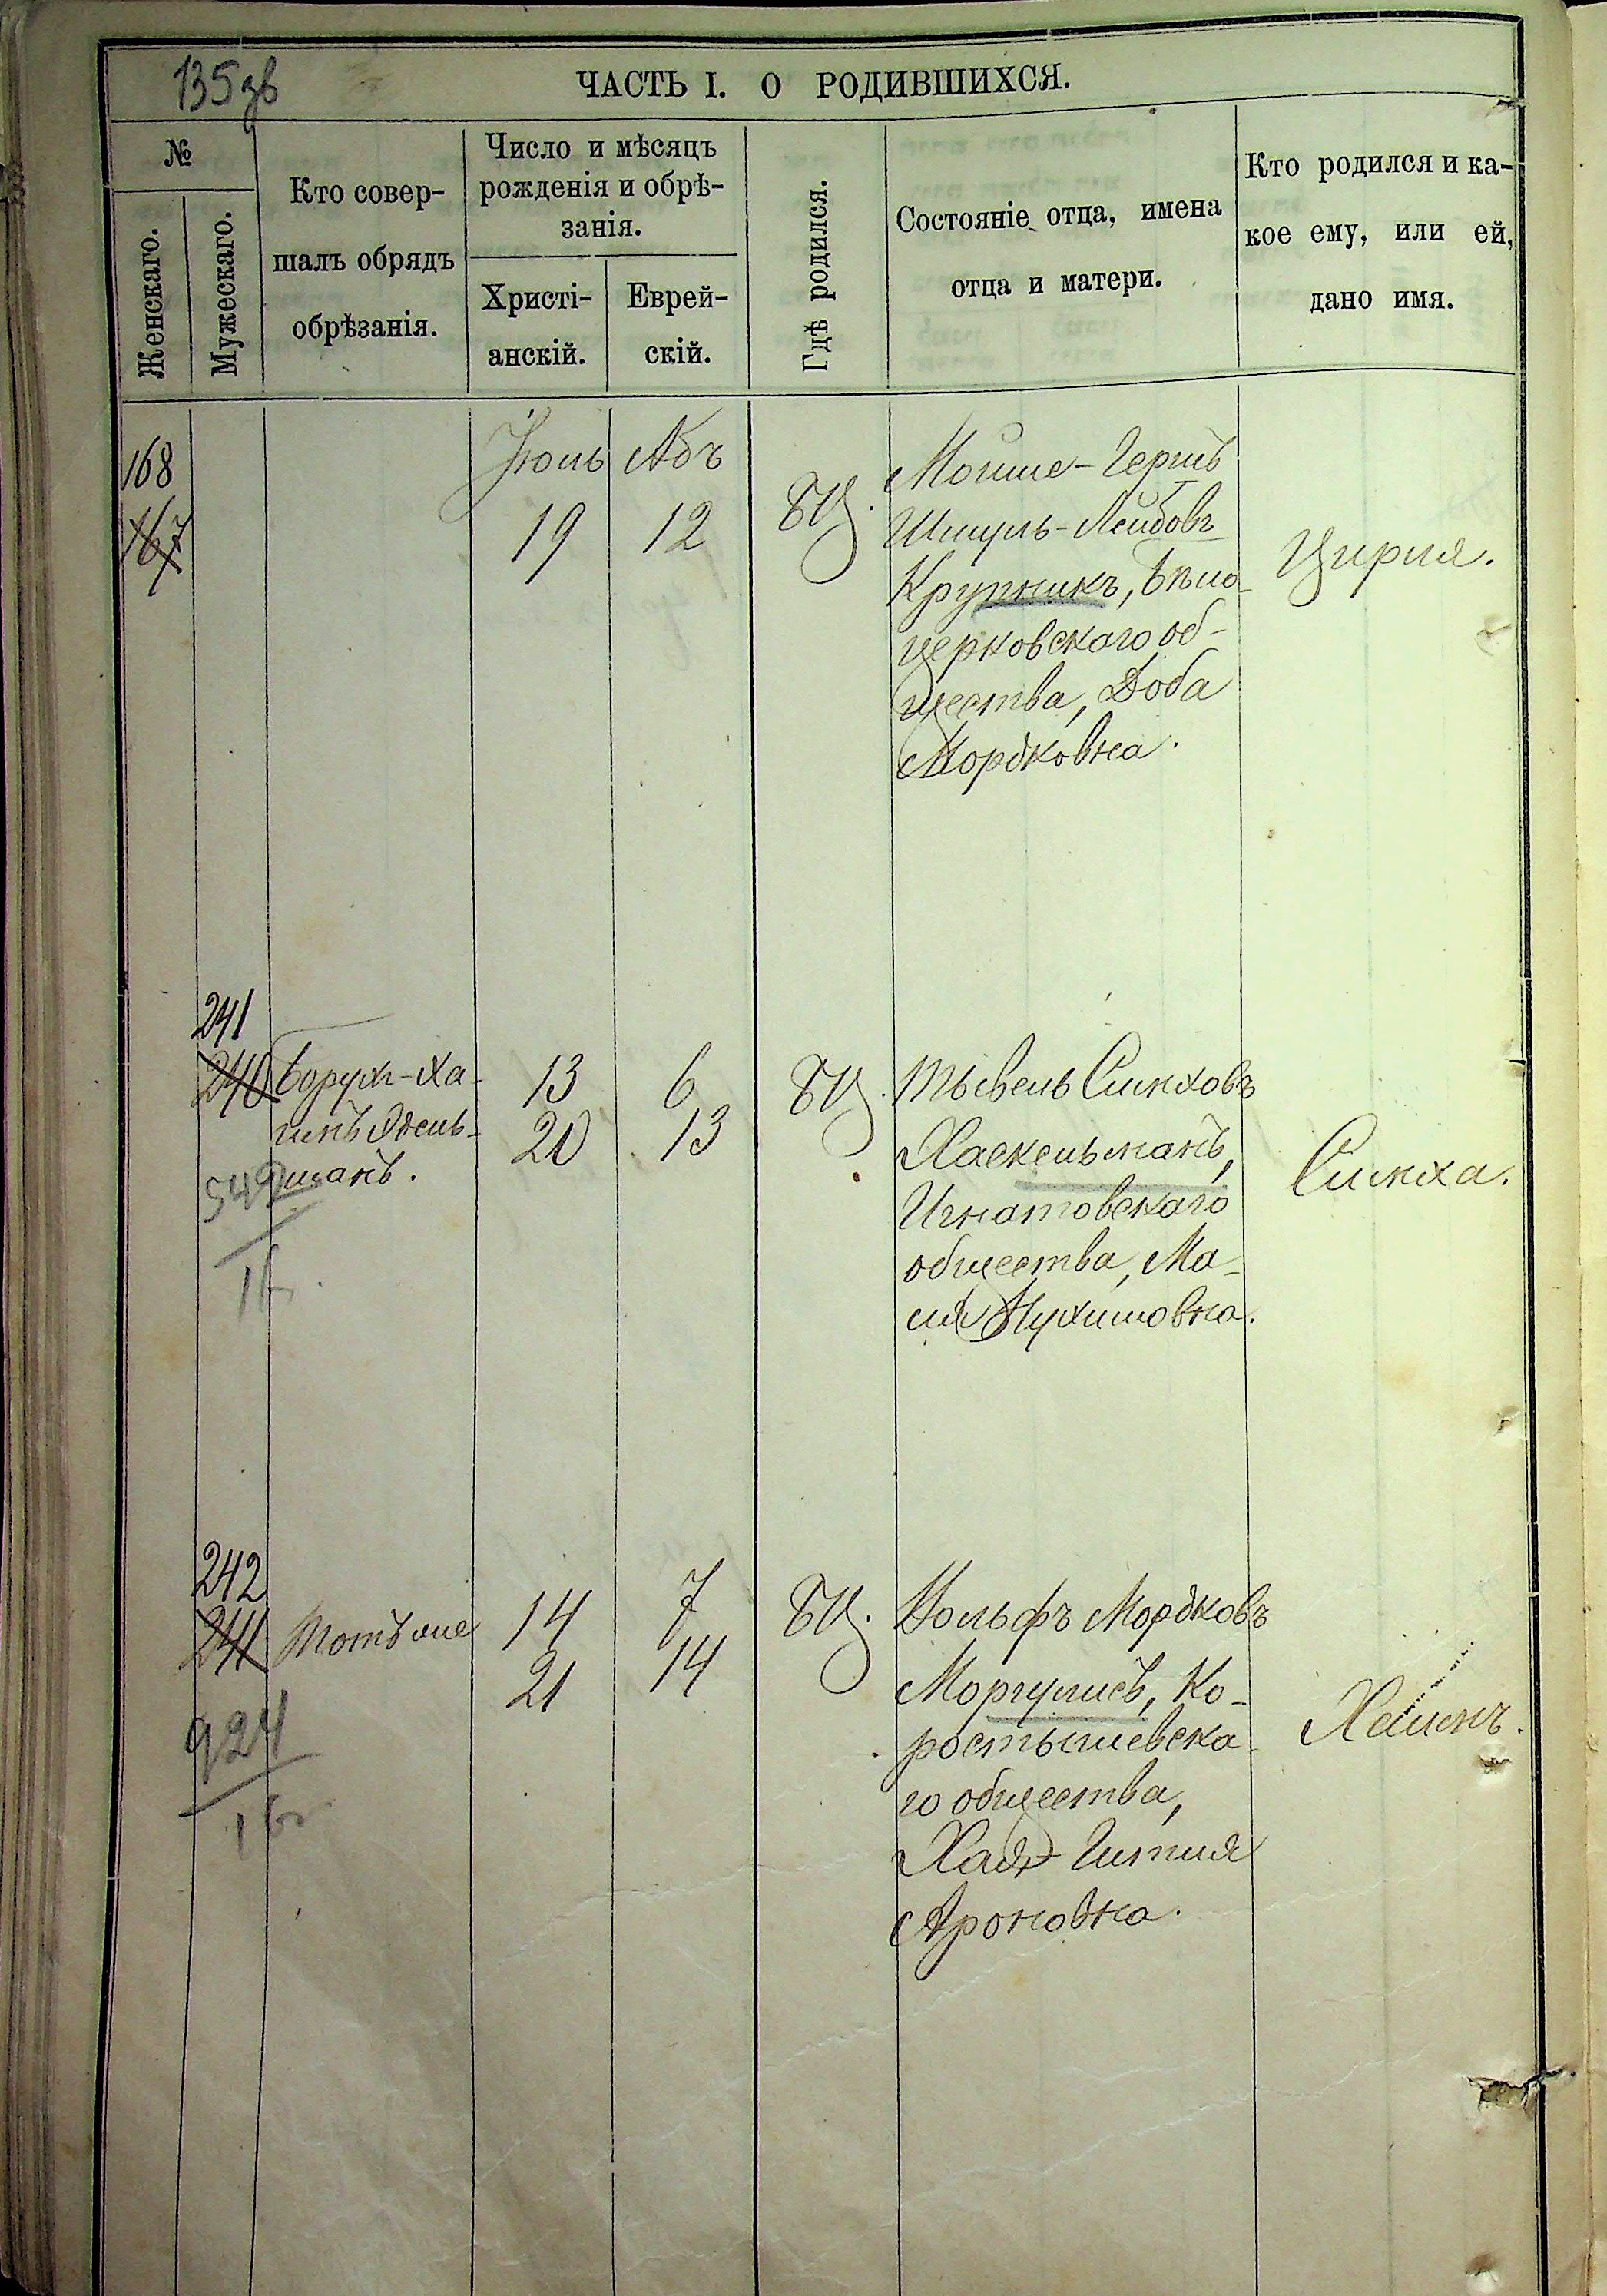 135 зв
ЧАСТЬ I. О РОДИВШИХСЯ.
№
Женскаго.
Мужескаго.
Кто совер-
шалъ обрядъ
обрѣзанія.
Число и мѣсяцъ
рожденія и обрѣ-
занія.
Христі-
анскій.
Еврей-
скій.
Гдѣ родился.
Состояніе отца, имена
отца и матери.
Кто родился и ка-
кое ему, или ей,
дано имя.
168
167
Іюль
19
Абъ
12
БЦ.
Мошие-Гершъ
Шмуль-Лейбовъ
Крупникъ, Бѣло-
церковскаго об-
щества, Доба
Мордковна.
Цирля.
241
240
549
Борухъ-Ха-
имъ Эдель-
манъ.
13
20
6
13
БЦ.
Тывель Симховъ
Хаскельманъ,
Игнатовскаго
общества, Ма-
ля Нухимовна.
Симха.
242
241
924
Тотъ же
14
21
7
14
БЦ.
Вольфъ Мордковъ
Моргулисъ, Ко-
ростышевска-
го общества,
Хая-Гитля
Ароновна.
Хаимъ.